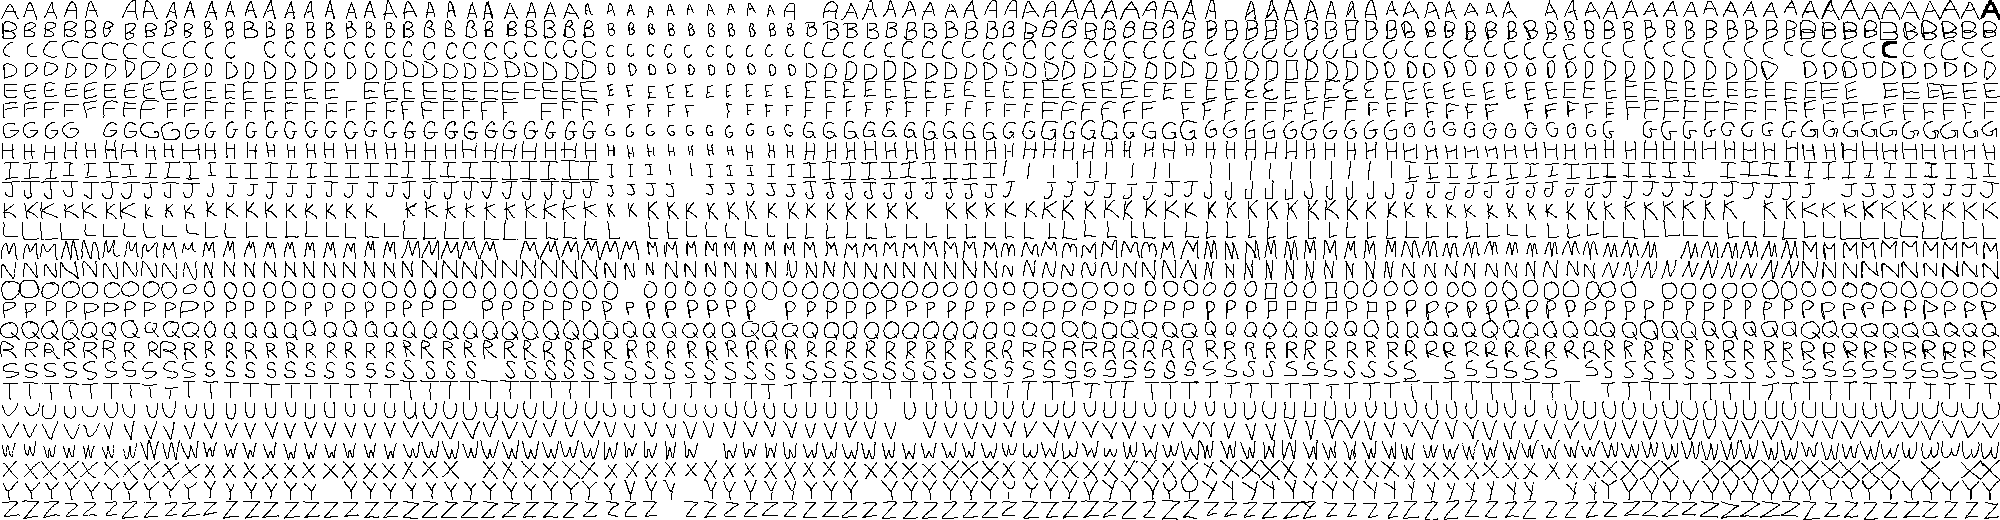 AAAAA AAAAAAAAAAAAAAAAAAAAAAAAAAAAAAAAAA AAAAAAAAAAAAAAAAAAAA AAAAAAAAAAAAAA AAAAAAAAAAAAAAAAAAAAAAA
BBBBBBBBBBBBBBBBBBBBBBBBBBBBBBBBBBBBBBBBBBBBBBBBBBBBBBBBBBBBBBBBBBBBBBBBBBBBBBBBBBBBBBBBBBBBBBBBBBBB
CCCCCCCCCCCC CCCCCCCCCCCCCCCCCCCCCCCCCCCCCCCCCCCCCCCCCCCCCCCCCCCCCCCCCCCCCCCCCCCCCCCCCCCCCCCCCCCCCCC
DDDDDDDDDDDDDDDDDDDDDDDDDDDDDDDDDDDDDDDDDDDDDDDDDDDDDDDDDDDDDDDDDDDDDDDDDDDDDDDDDDDDDDDDD DDDDDDDDDD
EEEEEEEEEEEEEEEEE EEEEEEEEEEEEEEEEEEEEEEEEEEEEEEEEEEEEEEEEEEEEEEEEEEEEEEEEEEEEEEEEEEEEEEEEEE EEEEEE
FFFFFFFFFFFFFFFFFFFFFFFFFF FFFFFFFFFFFFFFFFFFFFFFFFFFFFFFF FFFFFFFFFFFFFFFF FFFFFFFFFFFFFFFFFFFFFFFF
GGGG GGGGGGGGGGGGGGGGGGGGGGGGGGGGGGGGGGGGGGGGGGGGGGGGGGGGGGGGGGGGGGGGGGGGGGGGGGGG GGGGGGGGGGGGGGGGGG
HHHHHHHHHHHHHHHHHHHHHHHHHHHHHHHHHHHHHHHHHHHHHHHHHHHHHHHHHHHHHHHHHHHHHHHHHHHHHHHHHHHHHHHHHHHHHHHHHHHH
IIIIIIIIIIIIIIIIIIIIIIIIIIIIIIIIIIIIIIIIIIIIIIIIIIIIIIIIIIIIIIIIIIIIIIIIIIIIIIIIIIIII IIIIIIIIIIIIII
JJJJJJJJJJJJJJJJJJJJJJJJJJJJJJJJJJ JJJJJJJJJJJJJJJJ JJJJJJJJJJJJJJJJJJJJJJJJJJJJJJJJJJJJJJJJ JJJJJJJJ
KKKKKKKKKKKKKKKKKKK KKKKKKKKKKKKKKKKKKKKKKKKKK KKKKKKKKKKKKKKKKKKKKKKKKKKKKKKKKKKKKKKKK KKKKKKKKKKKK
LLLLLLLLLLLLLLLLLLLLLLLLLLLLLLLLLLLLLLLLLLLLLLLLLLLLLLLLLLLLLLLLLLLLLLLLLLLLLLLLLLLLLLLLLLLLLLLLLLLL
MMMMMMMMMMMMMMMMMMMMMMMMM MMMMMMMMMMMMMMMMMMMMMMMMMMMMMMMMMMMMMMMMMMMMMMMMMMMMMMMMM MMMMMMMMMMMMMMMM
NNNNNNNNNNNNNNNNNNNNNNNNNNNNNNNNNNNNNNNNNNNNNNNNNNNNNNNNNNNNNNNNNNNNNNNNNNNNNNNNNNNNNNNNNNNNNNNNNNNN
OOOOOOOOOOOOOOOOOOOOOOOOOOOOOOO OOOOOOOOOOOOOOOOOOOOOOOOOOOOOOOOOOOOOOOOOOOOOOOOOO OOOOOOOOOOOOOOOOO
PPPPPPPPPPPPPPPPPPPPPPP PPPPPPPPPPPPPP PPPPPPPPPPPPPPPPPPPPPPPPPPPPPPPPPPPPPPPPPPPPPPPPPPPPPPPPPPPPP
QQQQQQQQQQQQQQQQQQQQQQQQQQQQQQQQQQQQQQQQQQQQQQQQQQQQQQQQQQQQQQQQQQQQQQQQQQQQQQQQQQQQQQQQQQQQQQQQQQQQ
RRRRRRRRRRRRRRRRRRRRRRRRRRRRRRRRRRRRRRRRRRRRRRRRRRRRRRRRRRRRRRRRRRRRRRRRRRRRRRRRRRRRRRRRRRRRRRRRRRRR
SSSSSSSSSSSSSSSSSSSSSSSS SSSSSSSSSSSSSSSSSSSSSSSSSSSSSSSSSSSSSSSSSSSSSS SSSSSS SSSSSSSSSSSSSSSSSSSSS
TTTTTTTTTTTTTTTTTTTTTTTTTTTTTTTTTTTTTTTTTTTTTTTTTTTTTTTTTTTTTTTTTTTTTTTTTTTTTTTTTTTTTTTTTTTTTTTTTTTT
UUUUUUUUUUUUUUUUUUUUUUUUUUUUUUUUUUUUUUUUUUUU UUUUUUUUUUUUUUUUUUUUUUUUUUUUUUUUUUUUUUUUUUUUUUUUUUUUUUU
VVVVVVVVVVVVVVVVVVVVVVVVVVVVVVVVVVVVVVVVVVVVV VVVVVVVVVVVVVVVVVVVVVVVVVVVVVVVVVVVVVVVVVVVVVVVVVVVVVV
WWWWWWWWWWWWWWWWWWWWWWWWWWWWWWWWWWW WWWWWWWWWWWWWWWWWWWWWWWWWWWWWWWWWWWWWWWWWWWWWWWWWWWWWWWWWWWWWWWW
XXXXXXXXXXXXXXXXXXXXXXX XXXXXXXXXXXXXXXXXXXXXXXXXXXXXXXXXXXXXXXXXXXXXXXXXXXXXXXXXXXX XXXXXXXXXX X XX
YYYYYYYYYYYYYYYYYYYYYYYYYYYYYYYYYY YYYYYYYYYYYYYYYYYYYYYYYYYYYYYYYYYYYYYYYYYY YYYYYYYYYYYYYYYYYYYYYY
ZZZZZZZZZZZZZZZZZZZZZZZZZZZZZZZZZ ZZZZZZZZZZZZZZZZZZZZZZZZZZZZZZZZZZZZZZZZZZZZZZZZZZZZZZZZZZZZZZZZZZ